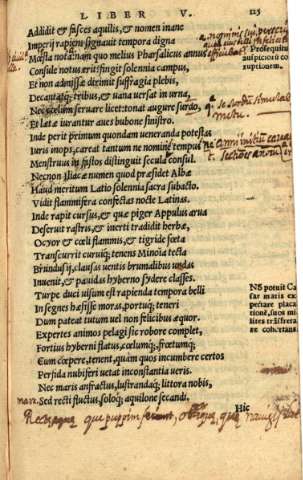 LIBER V. 125
Addidit & fasces aquilis, & nomen inane
Imperij rapiens signauit tempora digna
Mœsta nota: nam quo melius Pharsalicus annus
Consule notus erit: fingit solennia campus,
Et non admissæ dirimit suffragia plebis,
Decantatq; tribus, & uana uersat in urna,
Nec cœlum seruare licet: tonat augure surdo,
Et lætæ iurantur aues bubone sinistro.
Inde perit primum quondam ueneranda potestas
Iuris inops, careat tantum ne nomine tempus
Menstruus in fastos distinguit secula consul.
Necnon Iliacæ numen quod præsidet Albæ
Haud meritum Latio solennia sacra subacto.
Vidit flammifera confectas nocte Latinas.
Inde rapit cursus, & quæ piger Appulus arua
Deseruit rastris, & inerti tradidit herbæ,
Ocyor & cœli flammis, & tigride fœta
Transcurrit curuiq; tenens Minoia tecta
Brundusij, clausas uentis brumalibus undas
Inuenit, & pauidas hyberno sydere classes.
Turpe duci uisum est rapienda tempora belli
In segnes hæsisse moras, portuq; teneri
Dum pateat tutum uel non felicibus æquor.
Expertes animos pelagi sic robore complet,
Fortius hyberni flatus, cœlumq;, fretumq;
Cum cœpere, tenent, quàm quos incumbere certos
Perfida nubiferi uetat inconstantia ueris.
Nec maris anfractus, lustrandaq; littora nobis,
Sed recti fluctus, soloq; aquilone secandi.
Hic
Prosequitur
auspiciorū cor
ruptionem.
Nō potuit Cæ
sar maris ex
pectare placa
tionē, suos mi
lites trāsfreta
re cohortans
mare.